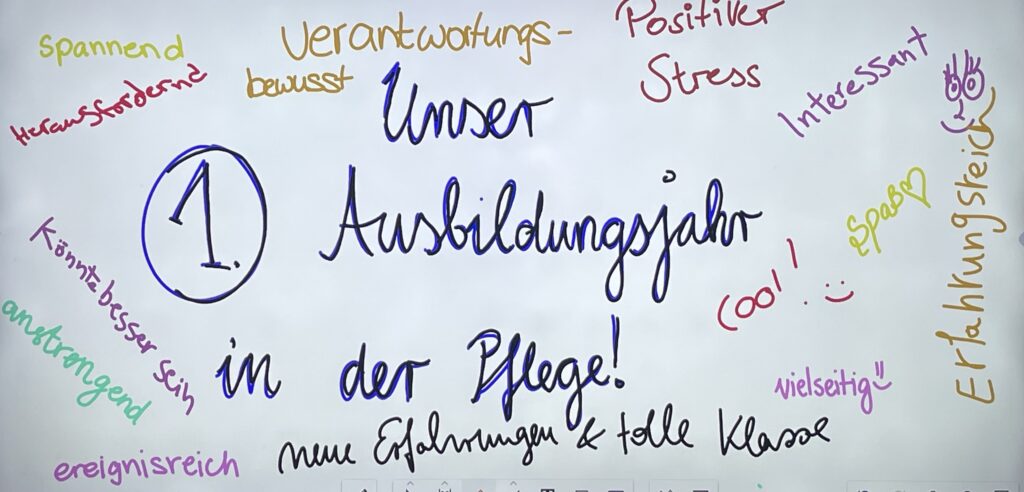 spannend
Verantwortungs-
bewusst
Positiver
Stress
Herausfordernd
Interessant
Unser
1. Ausbildungsjahr
in der Pflege!
Spaß♡
Erfahrungsreich
Könnte besser sein
anstrengend
cool! :)
vielseitig
ereignisreich
neue Erfahrungen & tolle Klasse